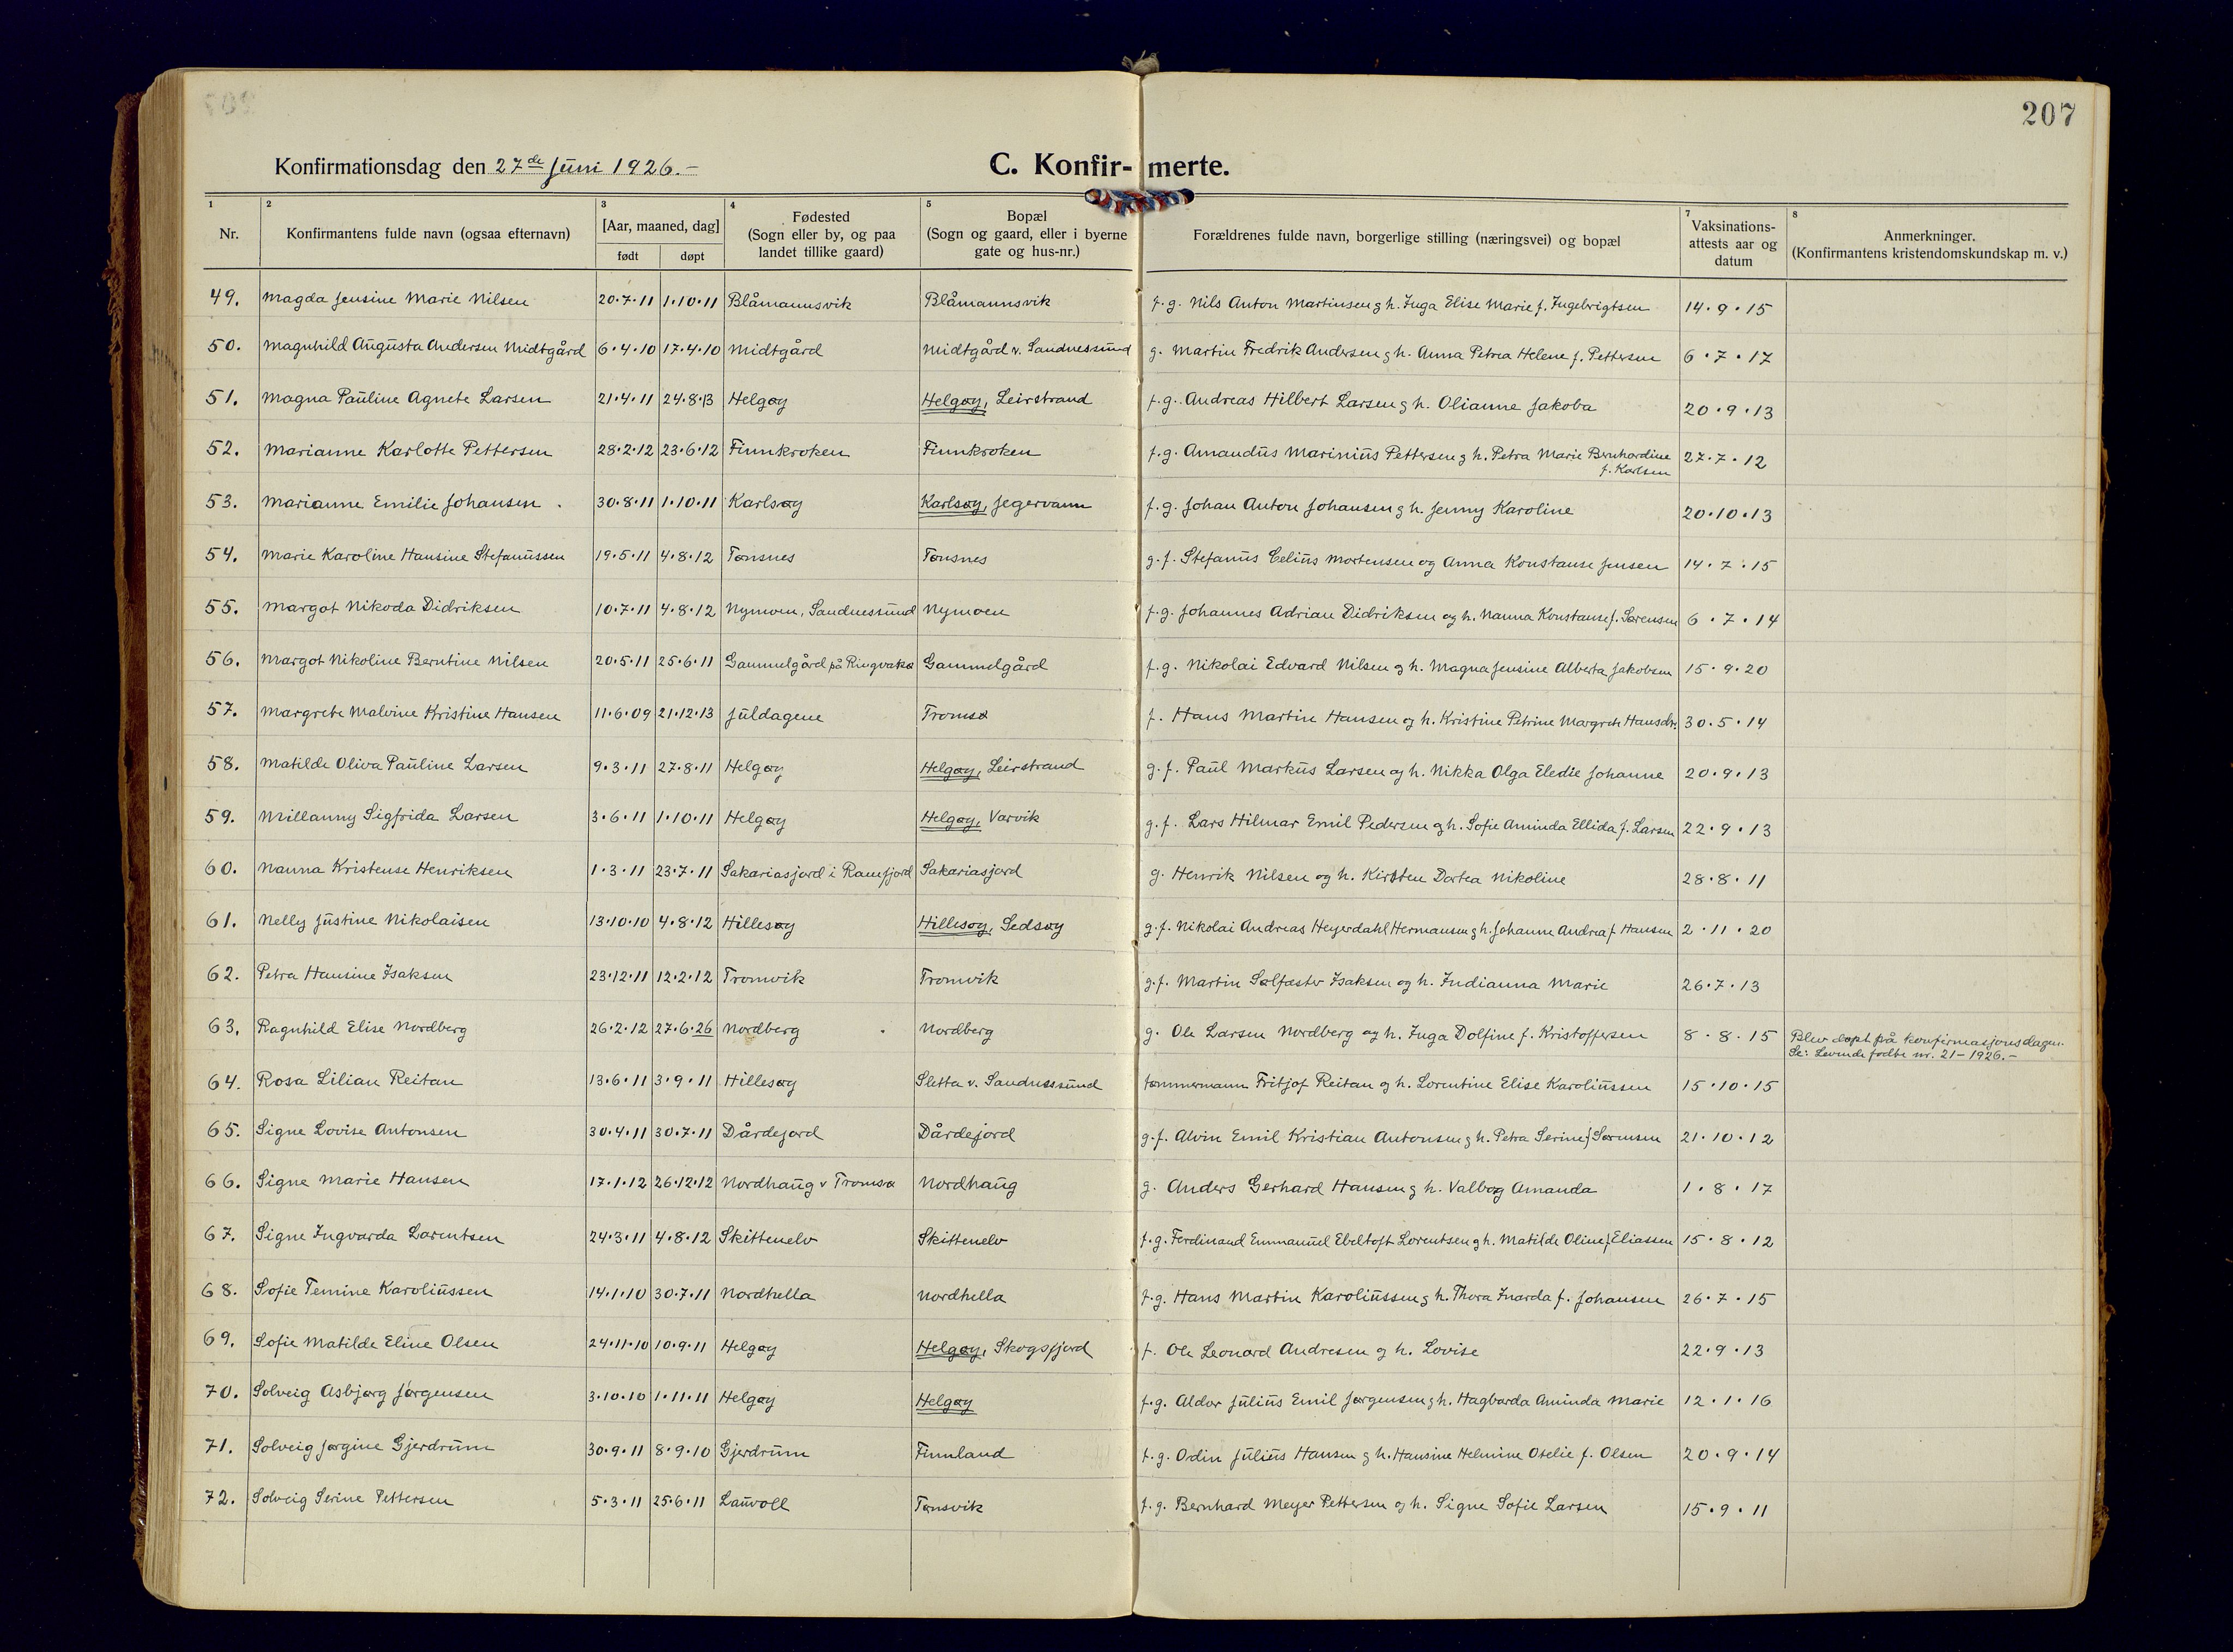 207
Konfirmationsdag den 27de Juni 1926.-
C. Konfir- merte.
1 2 3 4 5 7 8
Nr. Konfirmantens fulde navn (ogsaa efternavn) [Aar, maaned, dag] født døpt Fødested (Sogn eller by, og paa landet tillike gaard) Bopæl (Sogn og gaard, eller i byerne gate og hus-nr.) Forældrenes fulde navn, borgerlige stilling (næringsvei) og bopæl Vaksinations-attests aar og datum Anmerkninger. (Konfirmantens kristendomskundskap m. v.)
49. Magda Jensine Marie Nilsen 20.7.11 1.10.11 Blåmannsvik Blåmannsvik f.g. Nils Anton Martinsen g h. Inga Elise Marie f. Ingebrigtsen 14.9.15
50. Magnhild Augusta Andersen Midtgård 6.4.10 17.4.10 Midtgård Midtgård v. Sandnessund g. Martin Fredrik Andersen g h. Anna Petrea Helene f. Pettersen 6.7.17
51. Magna Pauline Agnete Larsen 21.4.11 24.8.13 Helgøy Helgøy, Leirstrand f.g. Andreas Hilbert Larsen g h. Olianne Jakoba 20.9.13
52. Marianne Karlotte Pettersen 28.2.12 23.6.12 Finnkroken Finnkroken f.g. Amandus Marinius Pettersen g h. Petra Marie Bernhardine f. Karlsen 27.7.12
53. Marianne Emilie Johansen 30.8.11 1.10.11 Karlsøy Karlsøy, Jegervann f.g. Johan Anton Johansen g h. Jenny Karoline 20.10.13
54. Marie Karoline Hansine Stefanussen 19.5.11 4.8.12 Tønsnes Tønsnes g.f. Stefanus Celius Mortensen og Anna Konstanse Jensen 14.7.15
55. Margot Nikoda Didriksen 10.7.11 4.8.12 Nymoen, Sandnessund Nymoen f.g. Johannes Adrian Didriksen og h. Nanna Konstanse f. Sørensen 6.7.14
56. Margot Nikoline Berntine Nilsen 20.5.11 25.6.11 Gammelgård på Ringvaksø Gammelgård f.g. Nikolai Edvard Nilsen g h. Magna Jensine Alberta Jakobsen 15.9.20
57. Margrete Malvine Kristine Hansen 11.6.09 21.12.13 Juldagene Tromsø f. Hans Martin Hansen og h. Kristine Petrine Margrete Hansdtr. 30.5.14
58. Matilde Oliva Pauline Larsen 9.3.11 27.8.11 Helgøy Helgøy, Leirstrand g.f. Paul Markus Larsen og h. Nikka Olga Eledie Johanne 20.9.13
59. Millanny Sigfrida Larsen 3.6.11 1.10.11 Helgøy Helgøy, Varvik g.f. Lars Hilmar Emil Pedersen g h. Sofie Aminda Ellida f. Larsen 22.9.13
60. Nanna Kristense Henriksen 1.3.11 23.7.11 Sakariasjord i Ramfjord Sakariasjord g. Henrik Nilsen og h. Kirsten Dortea Nikoline 28.8.11
61. Nelly Justine Nikolaisen 13.10.10 4.8.12 Hillesøy Hillesøy, Sedsøy g.f. Nikolai Andreas Heyerdahl Hermansen g h. Johanne Andrea f. Hansen 2.11.20
62. Petra Hansine Isaksen 23.12.11 12.2.12 Tromvik Tromvik g.f. Martin Sølfæster Isaksen og h. Indianna Marie 26.7.13
63. Ragnhild Elise Nordberg 26.2.12 27.6.26 Nordberg Nordberg g. Ole Larsen Nordberg og h. Inga Dolfine f. Kristoffersen 8.8.15 Blev døpt på konfirmasjonsdagen. Se: Levende fødte nr. 21-1926.-
64. Rosa Lilian Reitan 13.6.11 3.9.11 Hillesøy Sletta v. Sandnessund tømmermann Fritjof Reitan og h. Lorentine Elise Karoliussen 15.10.15
65. Signe Lovise Antonsen 30.4.11 30.7.11 Dårdejord Dårdejord g.f. Alvin Emil Kristian Antonsen g h. Petra Serine f Sørensen 21.10.12
66. Signe Marie Hansen 17.1.12 26.12.12 Nordhaug v Tromsø Nordhaug g. Anders Gerhard Hansen g h. Valborg Amanda 1.8.17
67. Signe Ingvarda Lorentsen 24.3.11 4.8.12 Skittenelv Skittenelv f.g. Ferdinand Emmanuel Ebeltoft Lorentsen g h. Matilde Oline f Eliassen 15.8.12
68. Sofie Temine Karoliussen 14.1.10 30.7.11 Nordhella Nordhella f.g. Hans Martin Karoliussen g h. Thora Inarda f. Johansen 26.7.15
69. Sofie Matilde Eline Olsen 24.11.10 10.9.11 Helgøy Helgøy, Skogsfjord f. Ole Leonard Andresen g h. Lovise 22.9.13
70. Solveig Asbjørg Jørgensen 3.10.10 1.11.11 Helgøy Helgøy f.g. Aldor Julius Emil Jørgensen g h. Hagbarda Aminda Marie 12.1.16
71. Solveig Jørgine Gjerdrum 30.9.11 8.9.10 Gjerdrum Finnland f.g. Odin Julius Hansen g h. Hansine Helmine Otelie f. Olsen 20.9.14
72. Solveig Serine Pettersen 5.3.11 25.6.11 Lauvoll Tønsvik f.g. Bernhard Meyer Pettersen og h. Signe Sofie Larsen 15.9.11